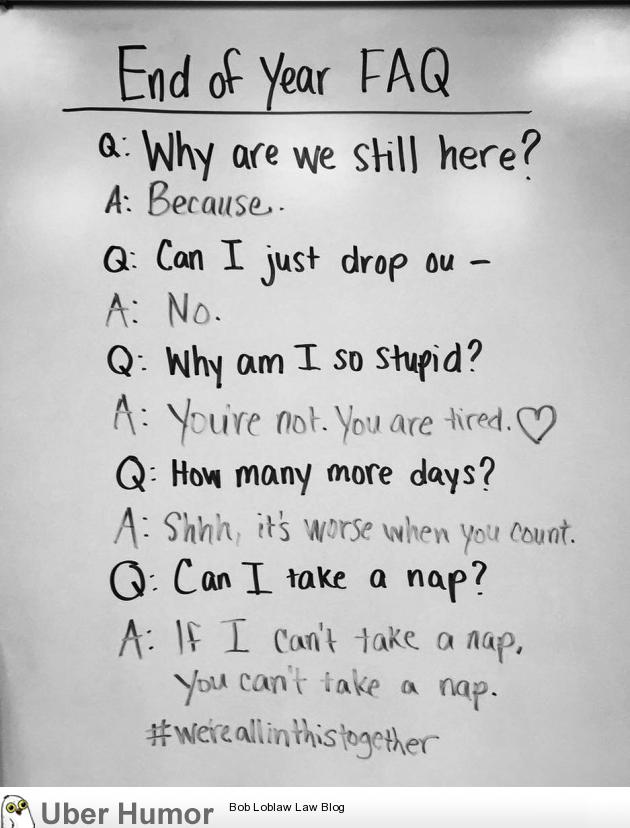 End of Year FAQ
Q: Why are we still here?
A: Because.
Q: Can I just drop ou -
A: No.
Q: Why am I so stupid?
A: You're not. You are tired.♡
Q: How many more days?
A: Shhh, it's worse when you count.
Q: Can I take a nap?
A: If I can't take a nap,
you can't take a nap.
#we'reallinthistogether
Uber Humor
Bob Loblaw Law Blog